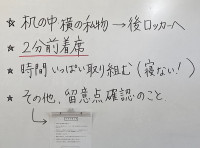 ☆ 机の中 横の私物 → 後ロッカーへ
☆ 2分前着席
☆ 時間いっぱい取り組む(寝ない!)
☆ その他、留意点確認のこと